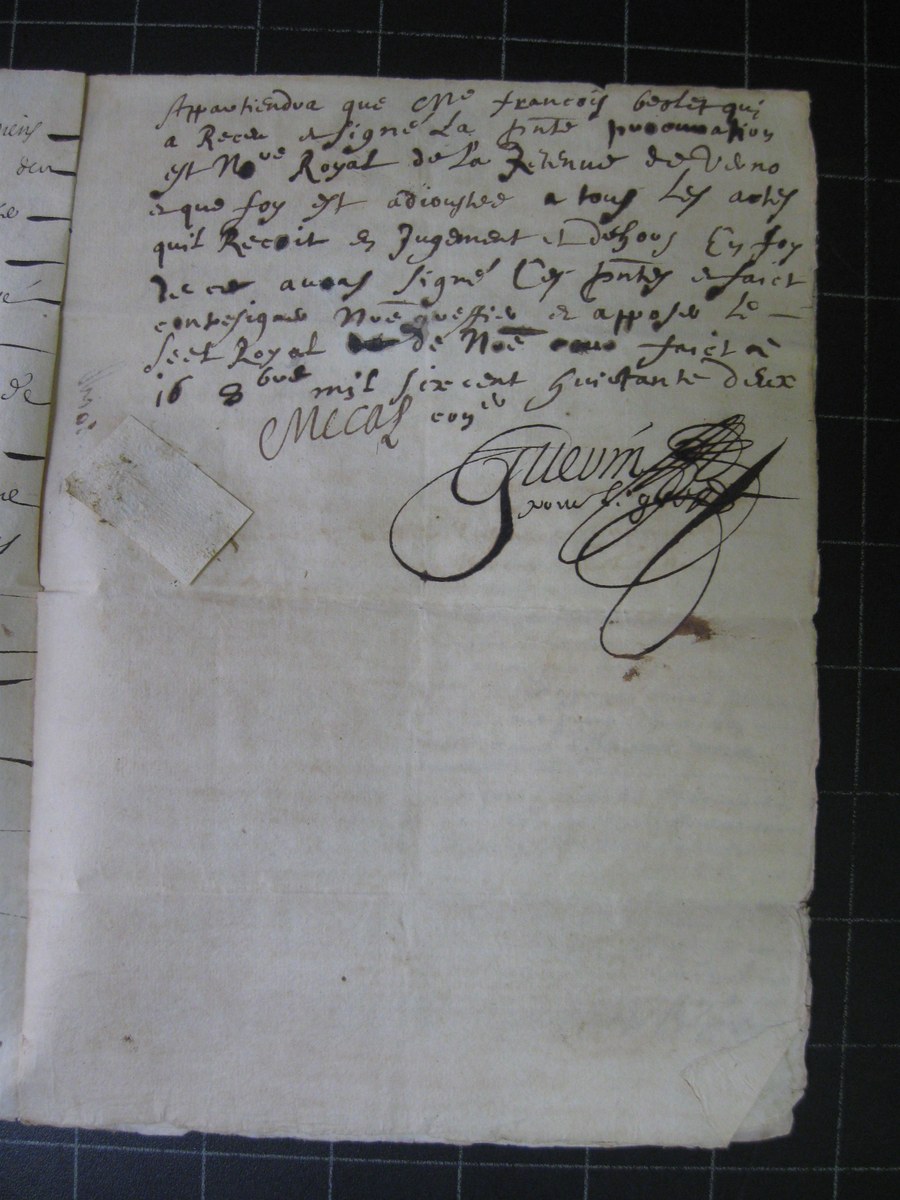 Appartiendra que Me francois beolet qui
a Receu et signé La pnte procuration
est Nore Royal de La Retenue de Verno
et que foy est adioustee a tous Les actes
quil Recoit en Jugement et dehors En foy
de ce avons signé Ces pntes et faict
contresigner Nre greffier et apposer Le
scel Royal de Nre faict a
16 8bre mil six cent huictante deux
Mecal coner
Guerin
pour